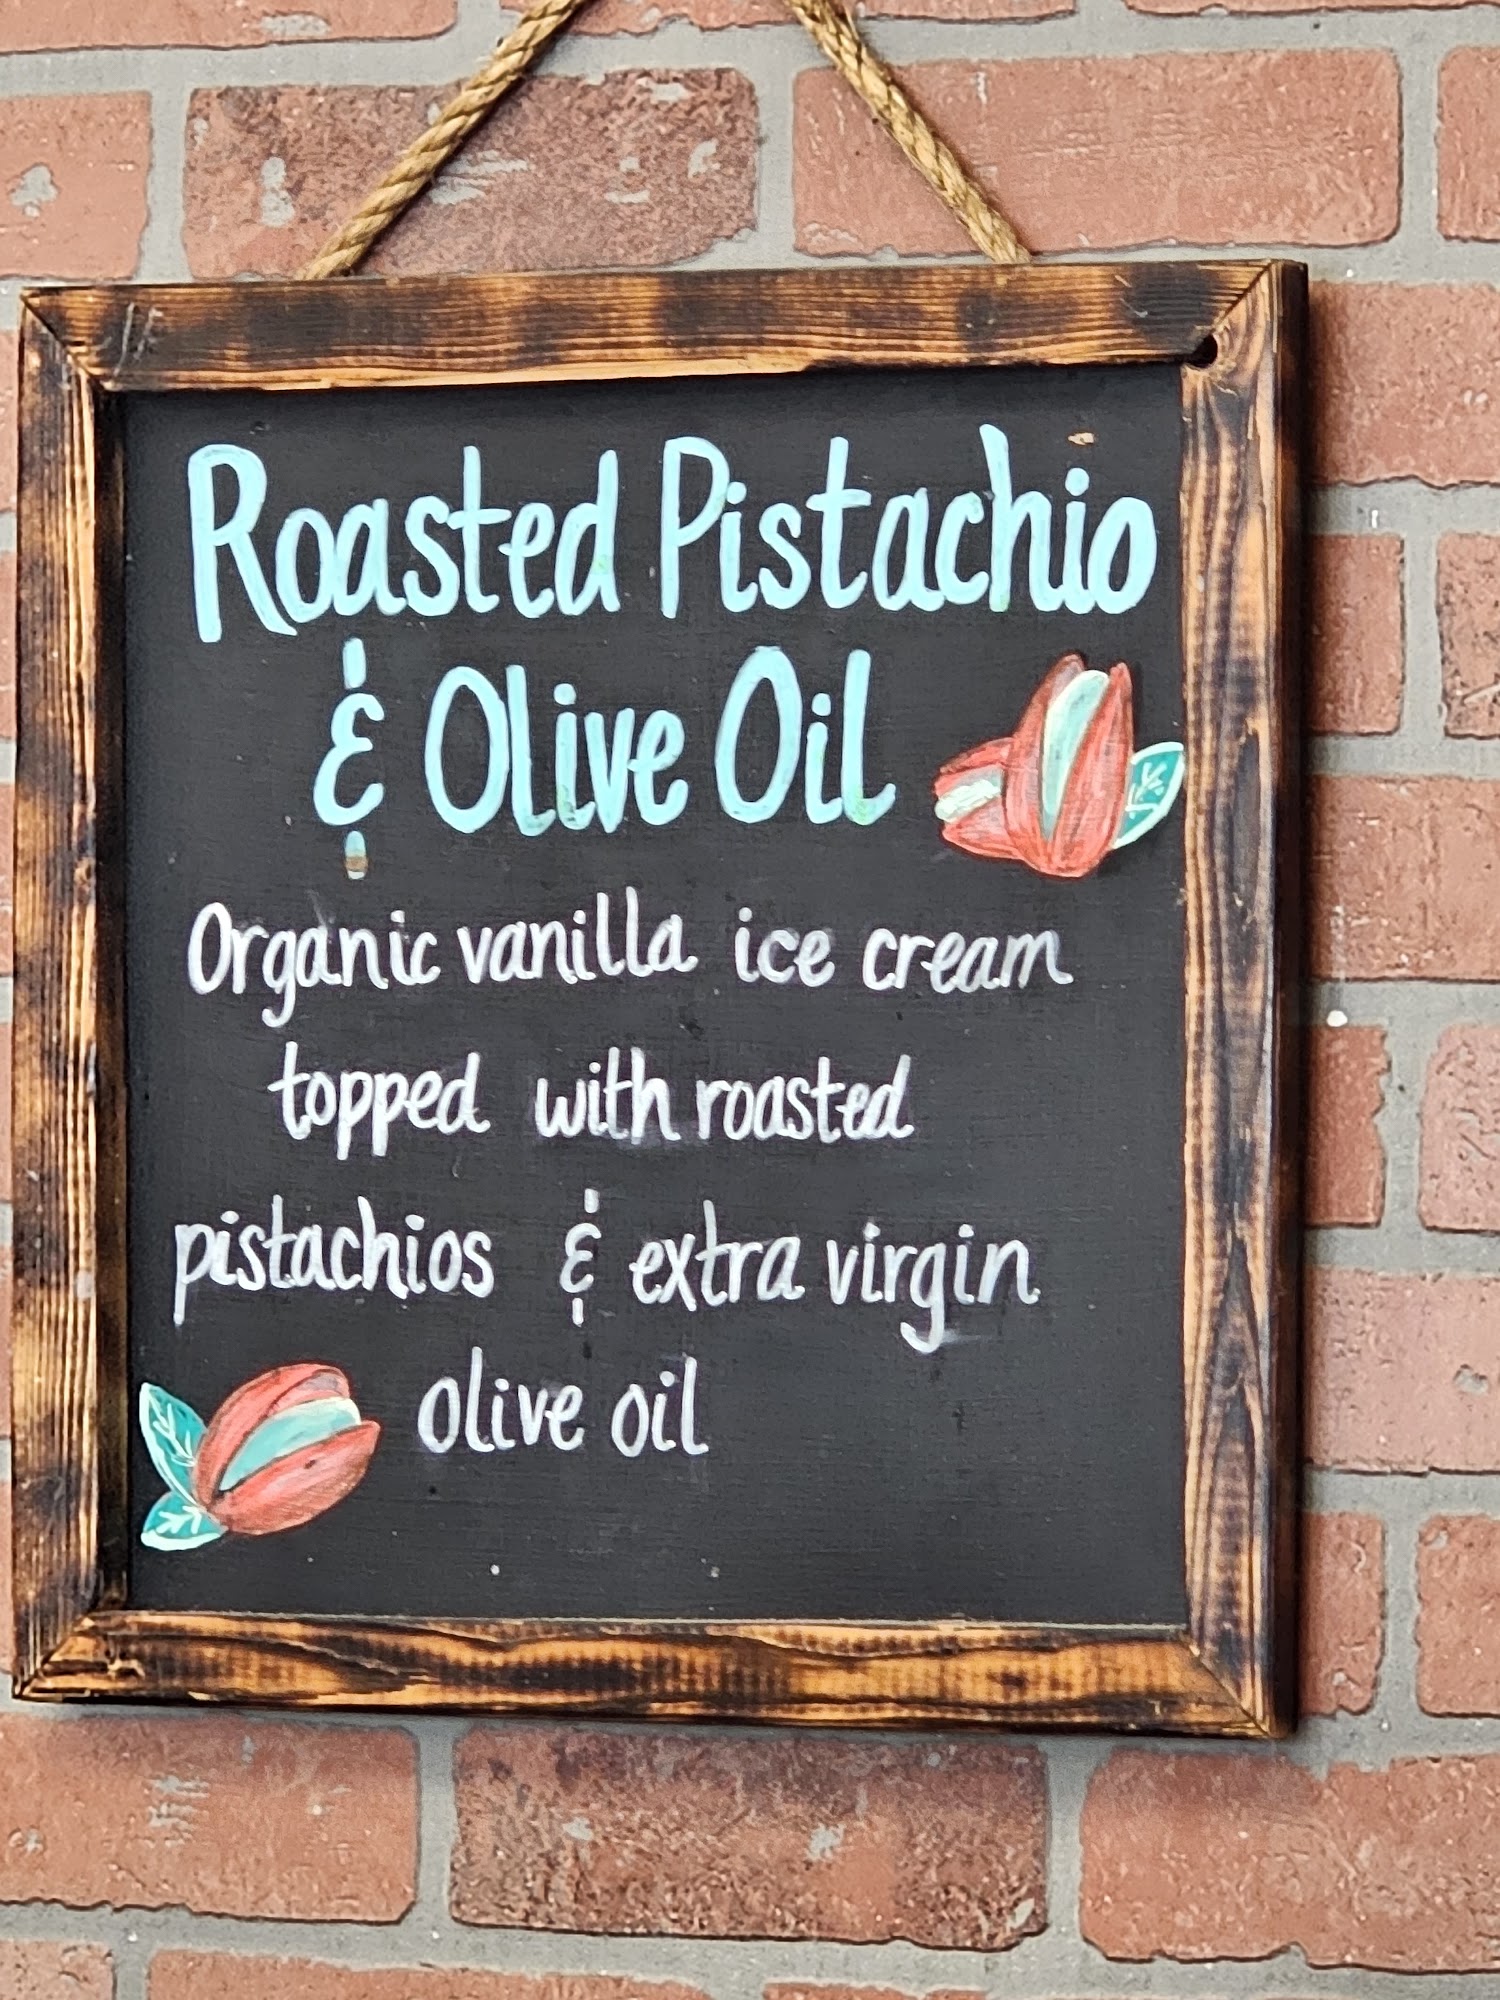 Roasted Pistachio
& Olive Oil
Organic vanilla ice cream
topped with roasted
pistachios & extra virgin
olive oil